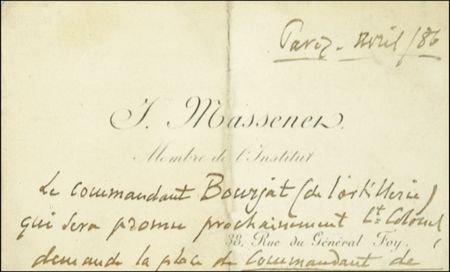 Paris - Avril /86
J. Massenet.
Membre de l'Institut
Le commandant Bourjat (de l'artillerie)
qui sera promu prochainement Lt. Colonel
38, Rue du Général Foy.
demande la place de commandant de